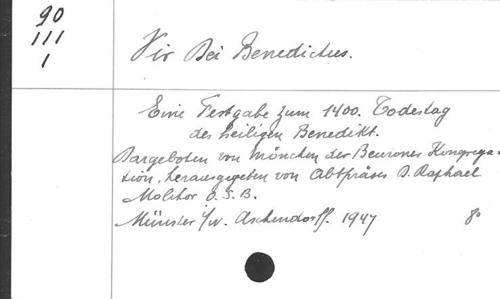 90
111
1
Vir Dei Benedictus.
Eine Festgabe zum 1400. Todestag
des heiligen Benedikt.
Dargeboten von Mönchen der Beuroner Kongrega-
tion, herausgegeben von Abtpräses D. Raphael
Molitor O.S.B.
Münster i/w. Aschendorff. 1947 8°